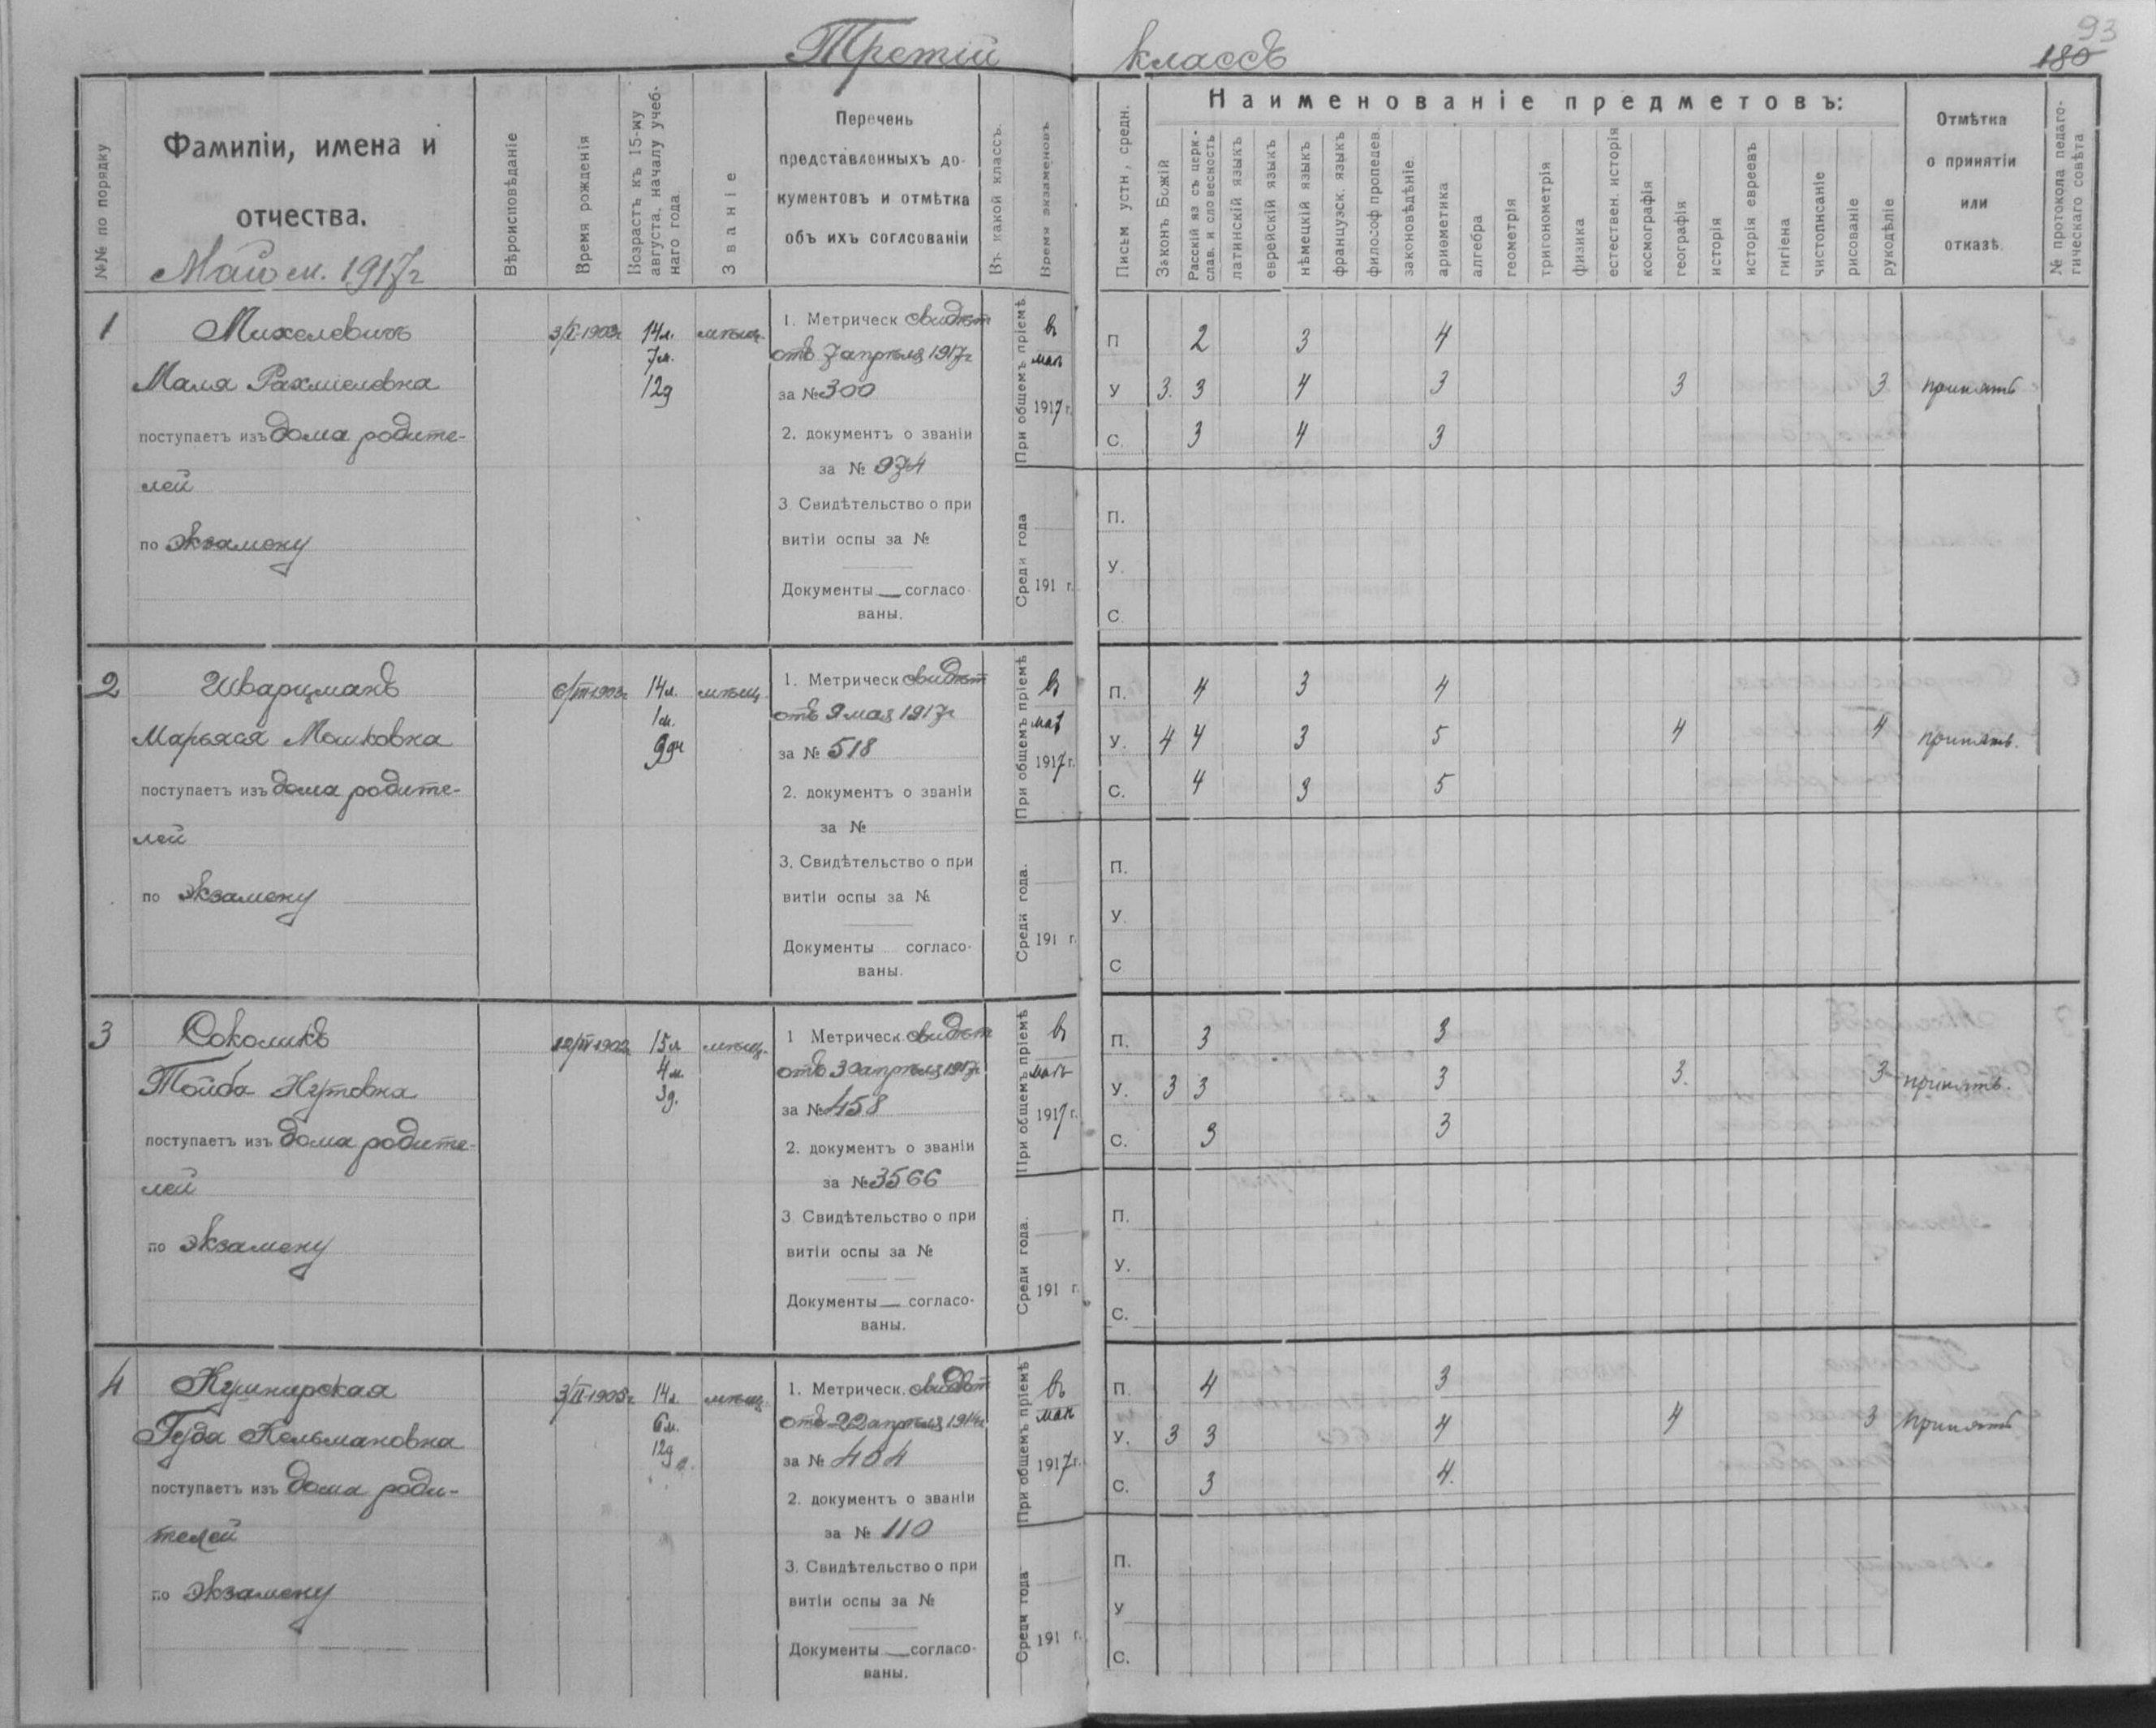 Третій классъ
93
180
№№ по порядку
Фамиліи, имена и
отчества.
Май м. 1917г
Вѣроисповѣданіе
Время рожденія
Возрастъ къ 15-му
августа, началу учеб-
наго года.
Званіе
Перечень
представленныхъ до-
кументовъ и отмѣтка
объ ихъ соглсованіи
Въ какой классъ.
Время экзаменовъ
Письм устн, средн.
Наименованіе предметовъ:
Законъ Божій
Расскій яз съ церк.-
слав. и словесность
латинскій языкъ
еврейскій языкъ
нѣмецкій языкъ
французск. языкъ
философ пропедев.
законовѣдѣніе.
ариөметика
алгебра
геометрія
тригонометрія
физика
естествен. исторія
космографія
географія
исторія
исторія евреевъ
гигіена
чистописаніе
рисованіе
рукодѣліе
Отмѣтка
о принятіи
или
отказѣ.
№ протокола педаго-
гическаго совѣта
1
Михелевичъ
Маля Рахмиелевна
поступаетъ изъ дома родите-
лей
по экзамену
14л.
7м.
12д
мѣщ.
1. Метрическ свидѣт
отъ 7 апрѣля 1917г
за № 300
2. документъ о званіи
за № 974
3. Свидѣтельство о при
витіи оспы за №
Документы — согласо-
ваны.
При общемъ пріемѣ
въ
маѣ
1917 г.
Среди года
191 г.
П 2 3 4
У 3. 3 4 3 3 3 принять
С. 3 4 3
П.
У.
С.
2
Шварцманъ
Марьяся Мошковна
поступаетъ изъ дома родите-
лей
по экзамену
14л.
1м.
9дн
мѣщ.
1. Метрическ свидѣт
отъ 9 мая 1917г
за № 518
2. документъ о званіи
за №
3. Свидѣтельство о при
витіи оспы за №
Документы согласо-
ваны.
При общемъ пріемѣ
въ
маѣ
1917 г.
Среди года.
191 г.
П. 4 3 4
У. 4 4 3 5 4 4 принять.
С. 4 3 5
П.
У.
С
3
Соколикъ
Тойба Нутовна
поступаетъ изъ дома родите-
лей
по экзамену
15л
4м.
3д.
мѣщ.
1 Метрическ. свидѣт
отъ 30 апрѣля 1917г
за № 458
2. документъ о званіи
за № 3566
3. Свидѣтельство о при
витіи оспы за №
Документы — согласо-
ваны.
При общемъ пріемѣ
въ
маѣ
1917 г.
Среди года.
191 г.
П. 3 3
У. 3 3 3 3. 3 принять.
С. 3 3
П.
У.
С.
4
Кушнирская
Гуда Кельмановна
поступаетъ изъ дома роди-
телей
по экзамену
14л.
6м.
12д
мѣщ.
1. Метрическ. свидѣт
отъ 22 апрѣля
за № 404
2. документъ о званіи
за № 110
3. Свидѣтельство о при
витіи оспы за №
Документы — согласо-
ваны.
При общемъ пріемѣ
въ
маѣ
1917 г.
Среди года
191 г.
П. 4 3
У. 3 3 4 4 3 принять
С. 3 4.
П.
У
С.